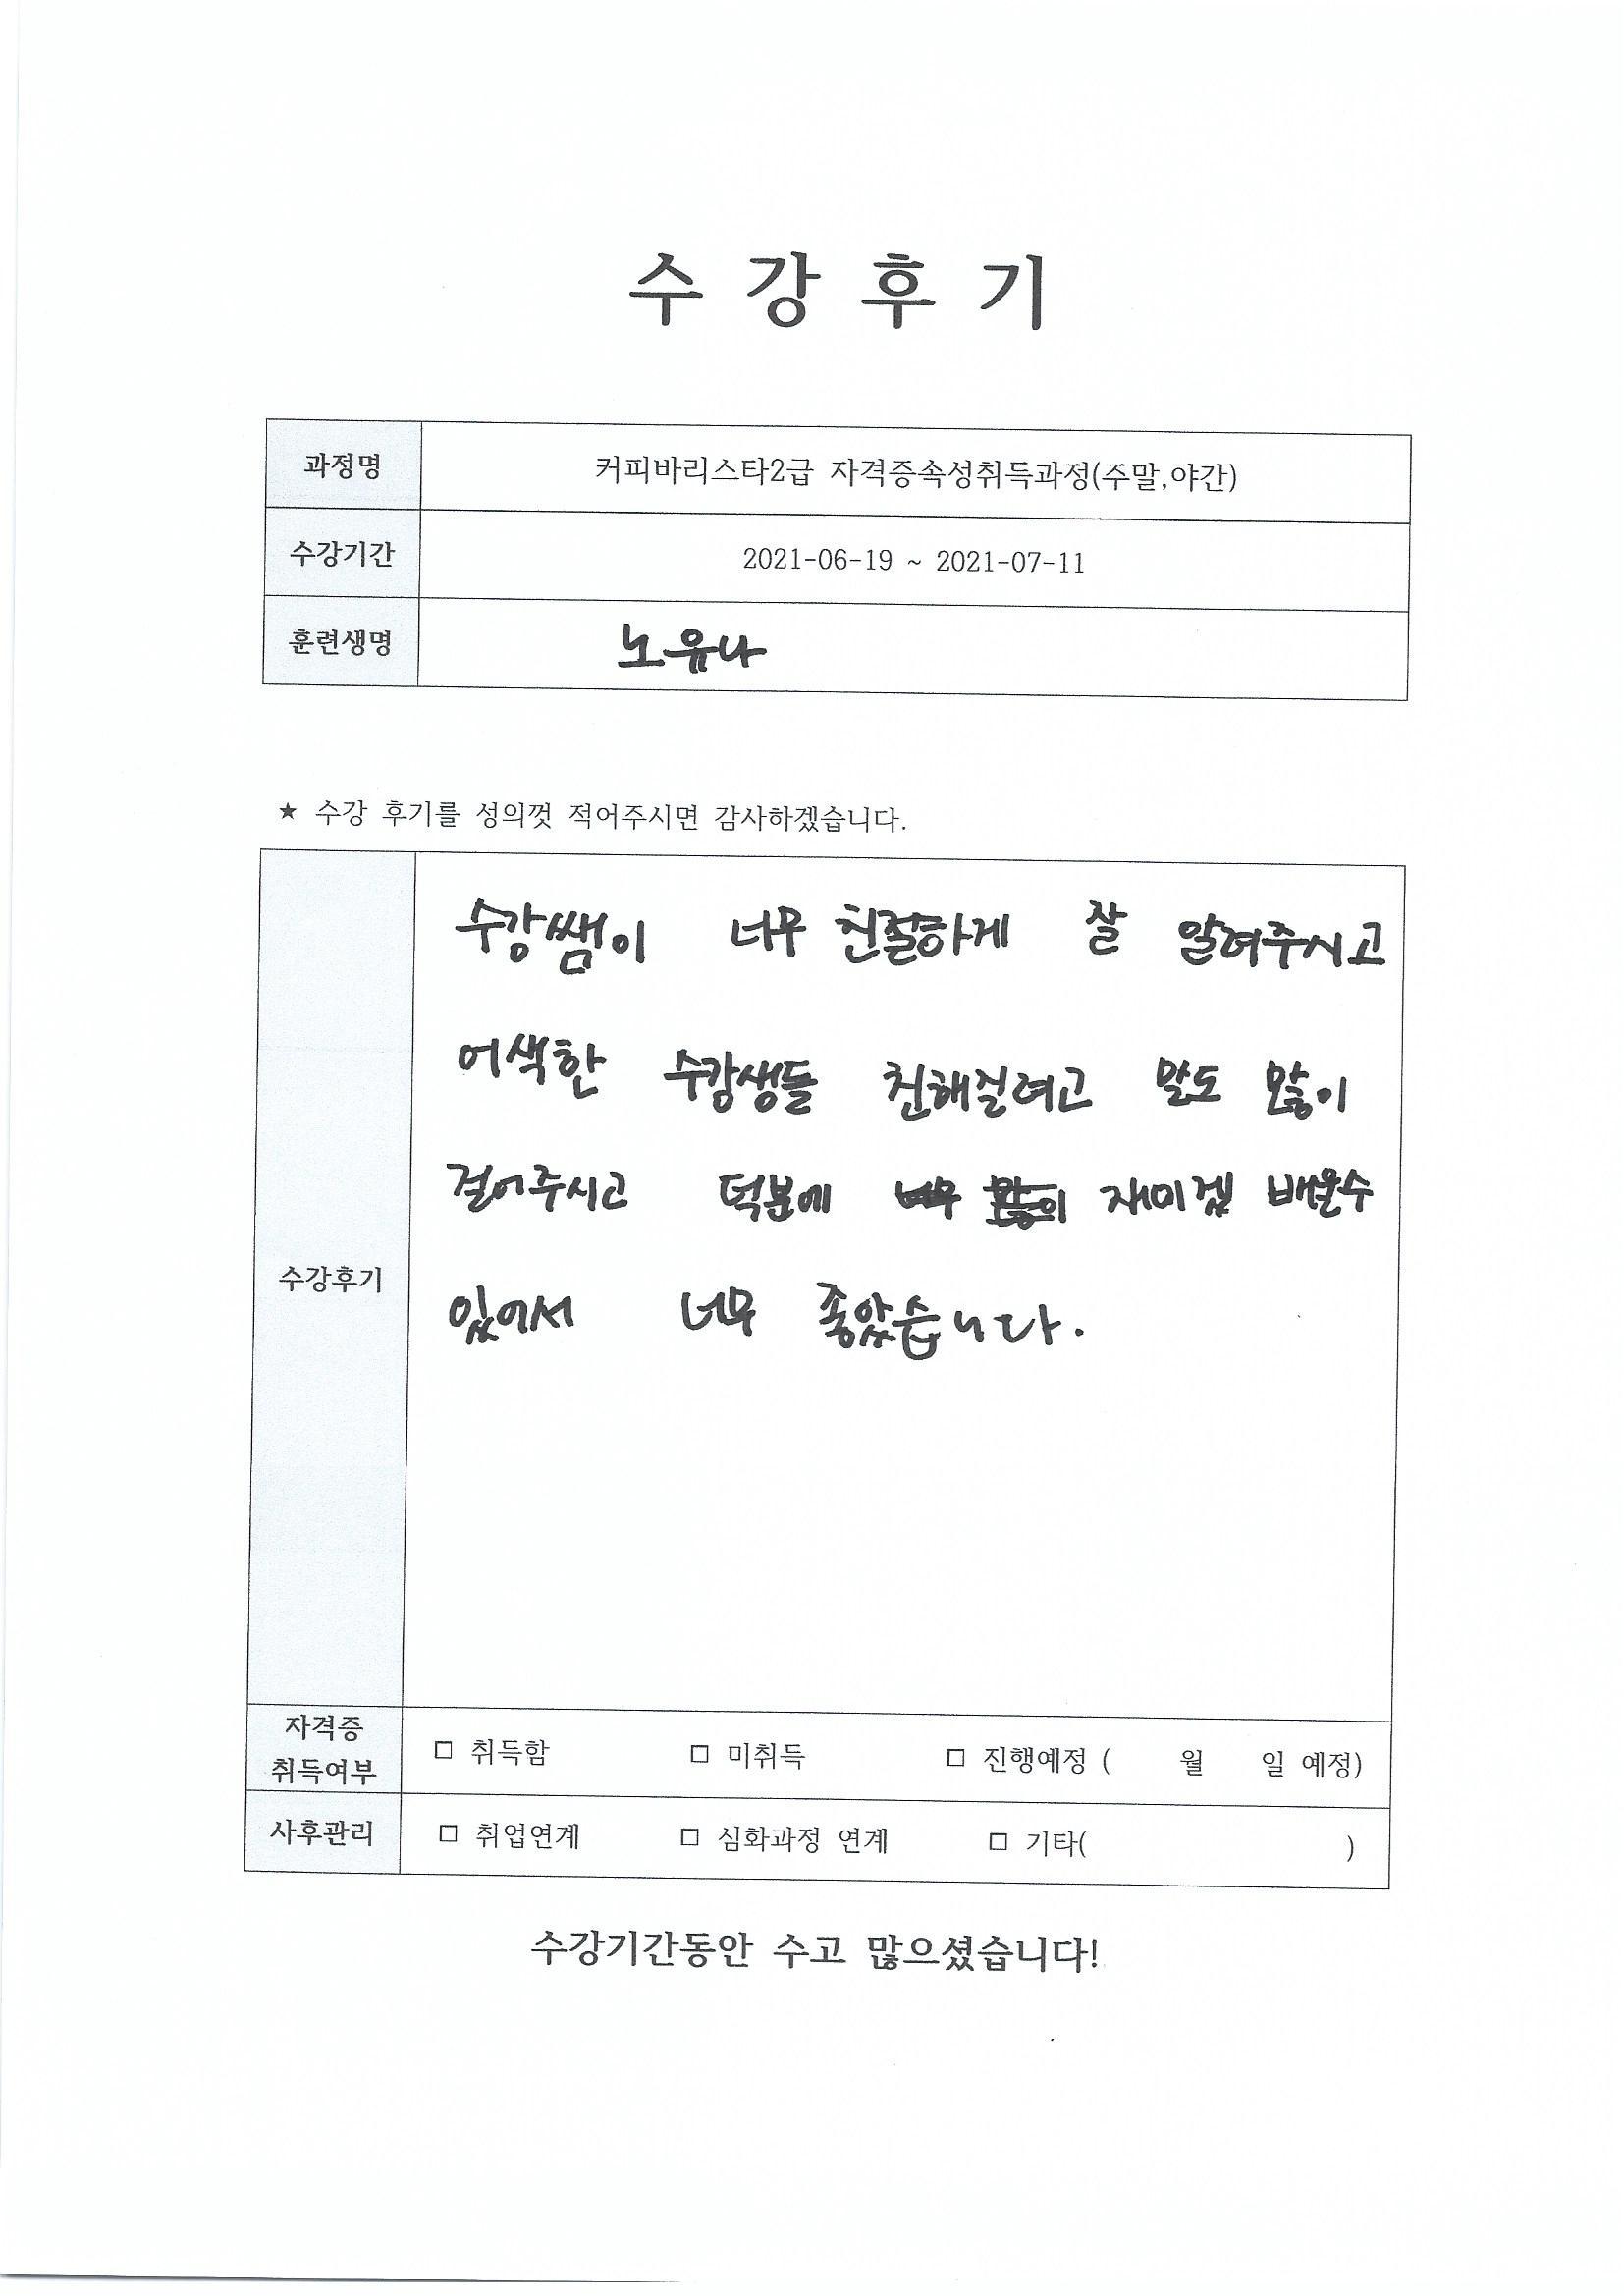 수 강 후 기
과정명 커피바리스타2급 자격증속성취득과정(주말,야간)
수강기간 2021-06-19 ~ 2021-07-11
훈련생명 노유나
★ 수강 후기를 성의껏 적어주시면 감사하겠습니다.
수강후기
수강쌤이 너무 친절하게 잘 알려주시고
어색한 수강생들 친해질려고 말도 많이
걸어주시고 덕분에 재미겠 배울수
있어서 너무 좋았습니다.
자격증 취득여부 □ 취득함 □ 미취득 □ 진행예정 ( 월 일 예정)
사후관리 □ 취업연계 □ 심화과정 연계 □ 기타( )
수강기간동안 수고 많으셨습니다!